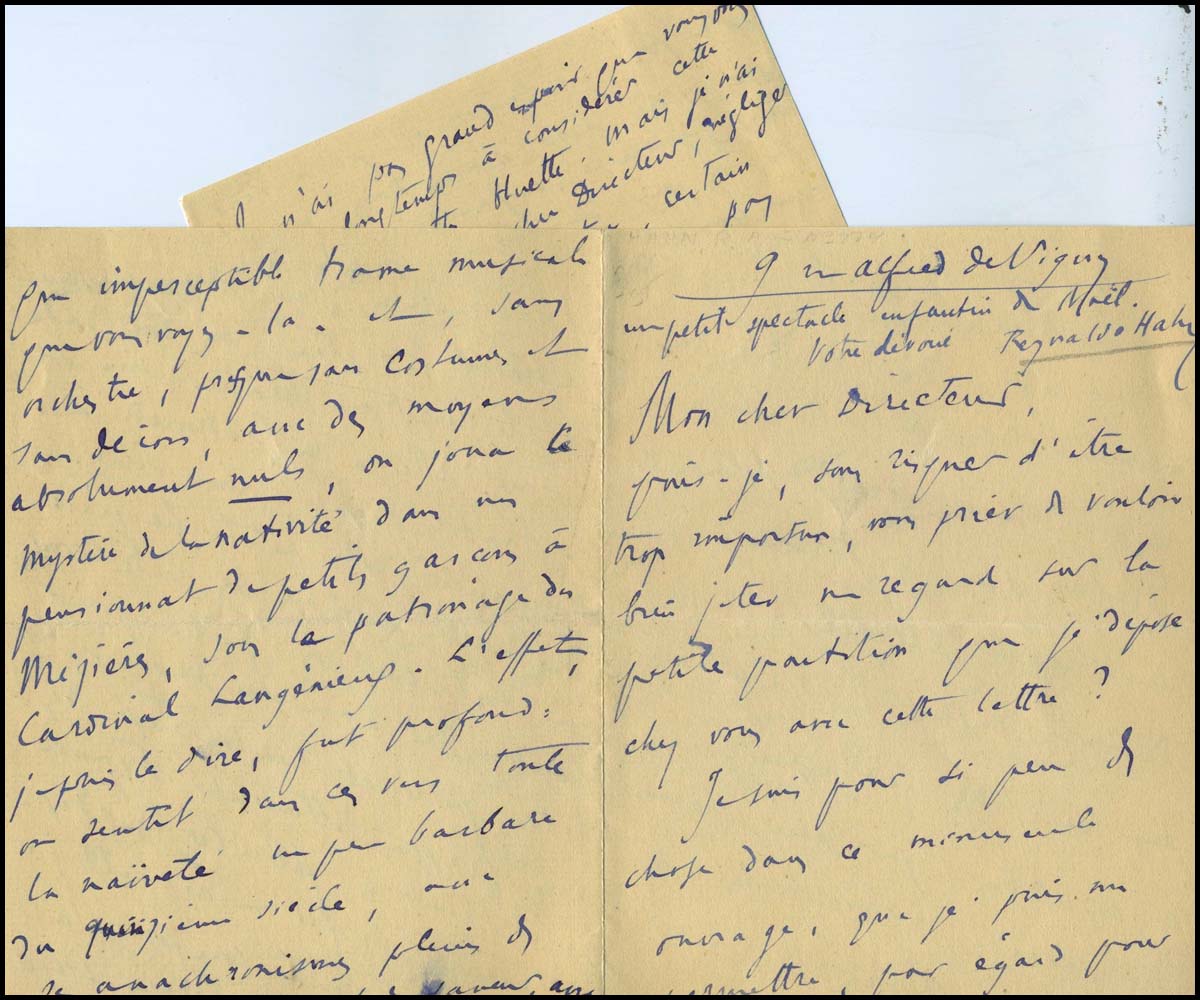 n'ai pas grand espoir que vous ayez
longtemps à considérer cette
bluette mais je n'ai
cher Directeur, négliger
certain
pas
9 rue Alfred de Vigny
un petit spectacle enfantin de Noël.
Votre dévoué Reynaldo Hahn
Mon cher Directeur,
puis-je, sans risquer d'être
trop importun, vous prier de vouloir
bien jeter un regard sur la
petite partition que je dépose
chez vous avec cette lettre ?
Je suis pour si peu de
chose dans ce minuscule
ouvrage, que je puis me
permettre, par égard pour
imperceptible trame musicale
que vous voyez-là - et, sans
orchestre, presque sans costumes et
sans décors, avec des moyens
absolument nuls, on joua le
mystère de la nativité dans un
pensionnat de petits garçons à
Mézières, sous le patronage du
Cardinal Langénieux. L'effet,
je puis le dire, fut profond :
on sentit dans ces vers toute
la naïveté un peu barbare
du quinzième siècle, avec
anachronismes pleins de
saveur, avec